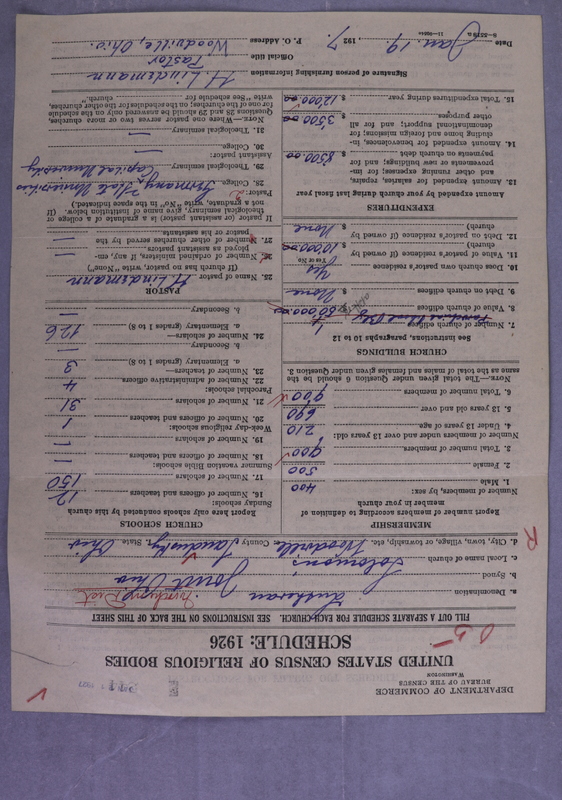 DEPARTMENT OF COMMERCE
BUREAU OF THE CENSUS
WASHINGTON
UNITED STATES CENSUS OF RELIGIOUS BODIES
SCHEDULE: 1926
FILL OUT A SEPARATE SCHEDULE FOR EACH CHURCH. SEE INSTRUCTIONS ON THE BACK OF THIS SHEET
a. Denomination Lutheran
b. Synod Joint Ohio
c. Local name of church Solomon's
d. City, town, village, or township, etc. Woodville County Sandusky State Ohio
R
MEMBERSHIP
Report number of members according to definition of member in your church
Number of members, by sex:
1. Male 400
2. Female 500
3. Total number of members 900
Number of members under and over 13 years old:
4. Under 13 years of age 210
5. 13 years old and over 690
6. Total number of members 900
NOTE.—The total given under Question 6 should be the same as the total of males and females given under Question 3.
CHURCH BUILDINGS
See instructions, paragraphs 10 to 12
7. Number of church edifices 1
8. Value of church edifices $
9. Debt on church edifices $ None
10. Does church own pastor's residence Yes
Yes or No
11. Value of pastor's residence (if owned by church) $ 10000.00
12. Debt on pastor's residence (if owned by church) $ None
EXPENDITURES
Amount expended by your church during last fiscal year
13. Amount expended for salaries, repairs, and other running expenses; for improvements or new buildings; and for payments on church debt $ 8500.00
14. Amount expended for benevolences, including home and foreign missions; for denominational support; and for all other purposes $ 3500.00
15. Total expenditures during year $ 12000.00
CHURCH SCHOOLS
Report here only schools conducted by this church
Sunday schools:
16. Number of officers and teachers 12
17. Number of scholars 150
Summer vacation Bible schools:
18. Number of officers and teachers —
19. Number of scholars —
Week-day religious schools:
20. Number of officers and teachers 1
21. Number of scholars 31
Parochial schools:
22. Number of administrative officers 4
23. Number of teachers—
a. Elementary (grades 1 to 8) 3
b. Secondary —
24. Number of scholars—
a. Elementary (grades 1 to 8) 126
b. Secondary —
PASTOR
25. Name of pastor H. Lindemann
(If church has no pastor, write "None")
26. Number of ordained ministers, if any, employed as assistant pastors —
27. Number of other churches served by the pastor or his assistants —
If pastor (or assistant pastor) is a graduate of a college or theological seminary, give name of institution below. (If not a graduate, write "No" in the space indicated.)
Pastor:
28. College
29. Theological seminary Capital University
Assistant pastor:
30. College —
31. Theological seminary —
NOTE.—Where one pastor serves two or more churches, Questions 25 and 29 should be answered only on the schedule for one of the churches; on the schedules for the other churches, write "See schedule for church."
Signature of person furnishing information H. Lindemann
Official title Pastor
Date Jan. 19. 1927. P. O. Address Woodville, Ohio.